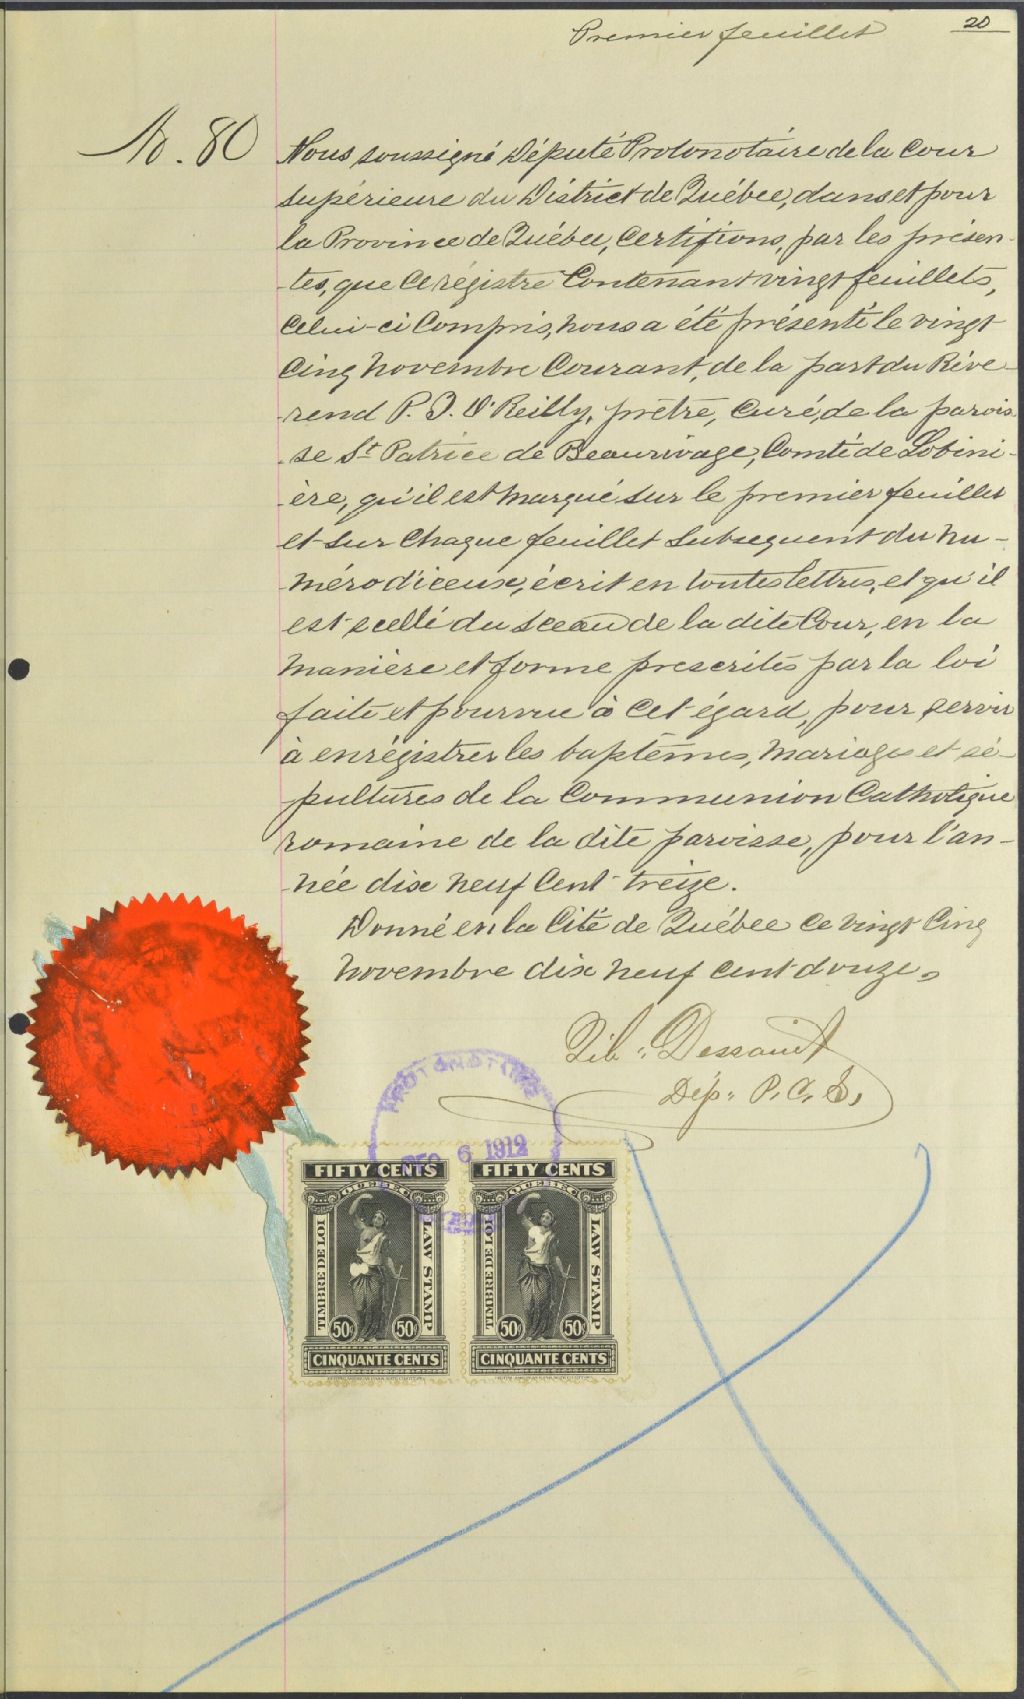 Premier feuillet
20
No. 80
Nous soussigné Député Protonotaire de la Cour
supérieure du District de Québec, dans et pour
la Province de Québec, Certifions, par les présen-
-tes, que ce régistre Contenant vingt feuillets,
Celui-ci Compris, nous a été présenté le vingt
Cinq Novembre Courant, de la part du Réve-
-rend P. J. O'Reilly, prêtre, Curé, de la parois
-se St Patrice de Beaurivage, Comté de Lobini-
-ère, qu'il est marqué sur le premier feuillet
et sur chaque feuillet subsequent du nu-
-méro d'iceux, écrit en toutes lettres, et qu'il
est scellé du sceau de la dite Cour, en la
manière et forme prescrites par la loi
faite et pourvue à cet égard, pour servir
à enrégistrer les baptêmes, mariages et sé-
pultures de la Communion Catholique
romaine de la dite paroisse, pour l'an-
-née dix neuf Cent treize.
Donné en la Cité de Québec ce vingt Cinq
novembre dix neuf cent douze,
Dessault
Dép. P. C. S.
PROTONOTAIRE
DEC 6 1912
FIFTY CENTS
QUEBEC
TIMBRE DE LOI
LAW STAMP
50¢ 50¢
CINQUANTE CENTS
FIFTY CENTS
QUEBEC
TIMBRE DE LOI
LAW STAMP
50¢ 50¢
CINQUANTE CENTS